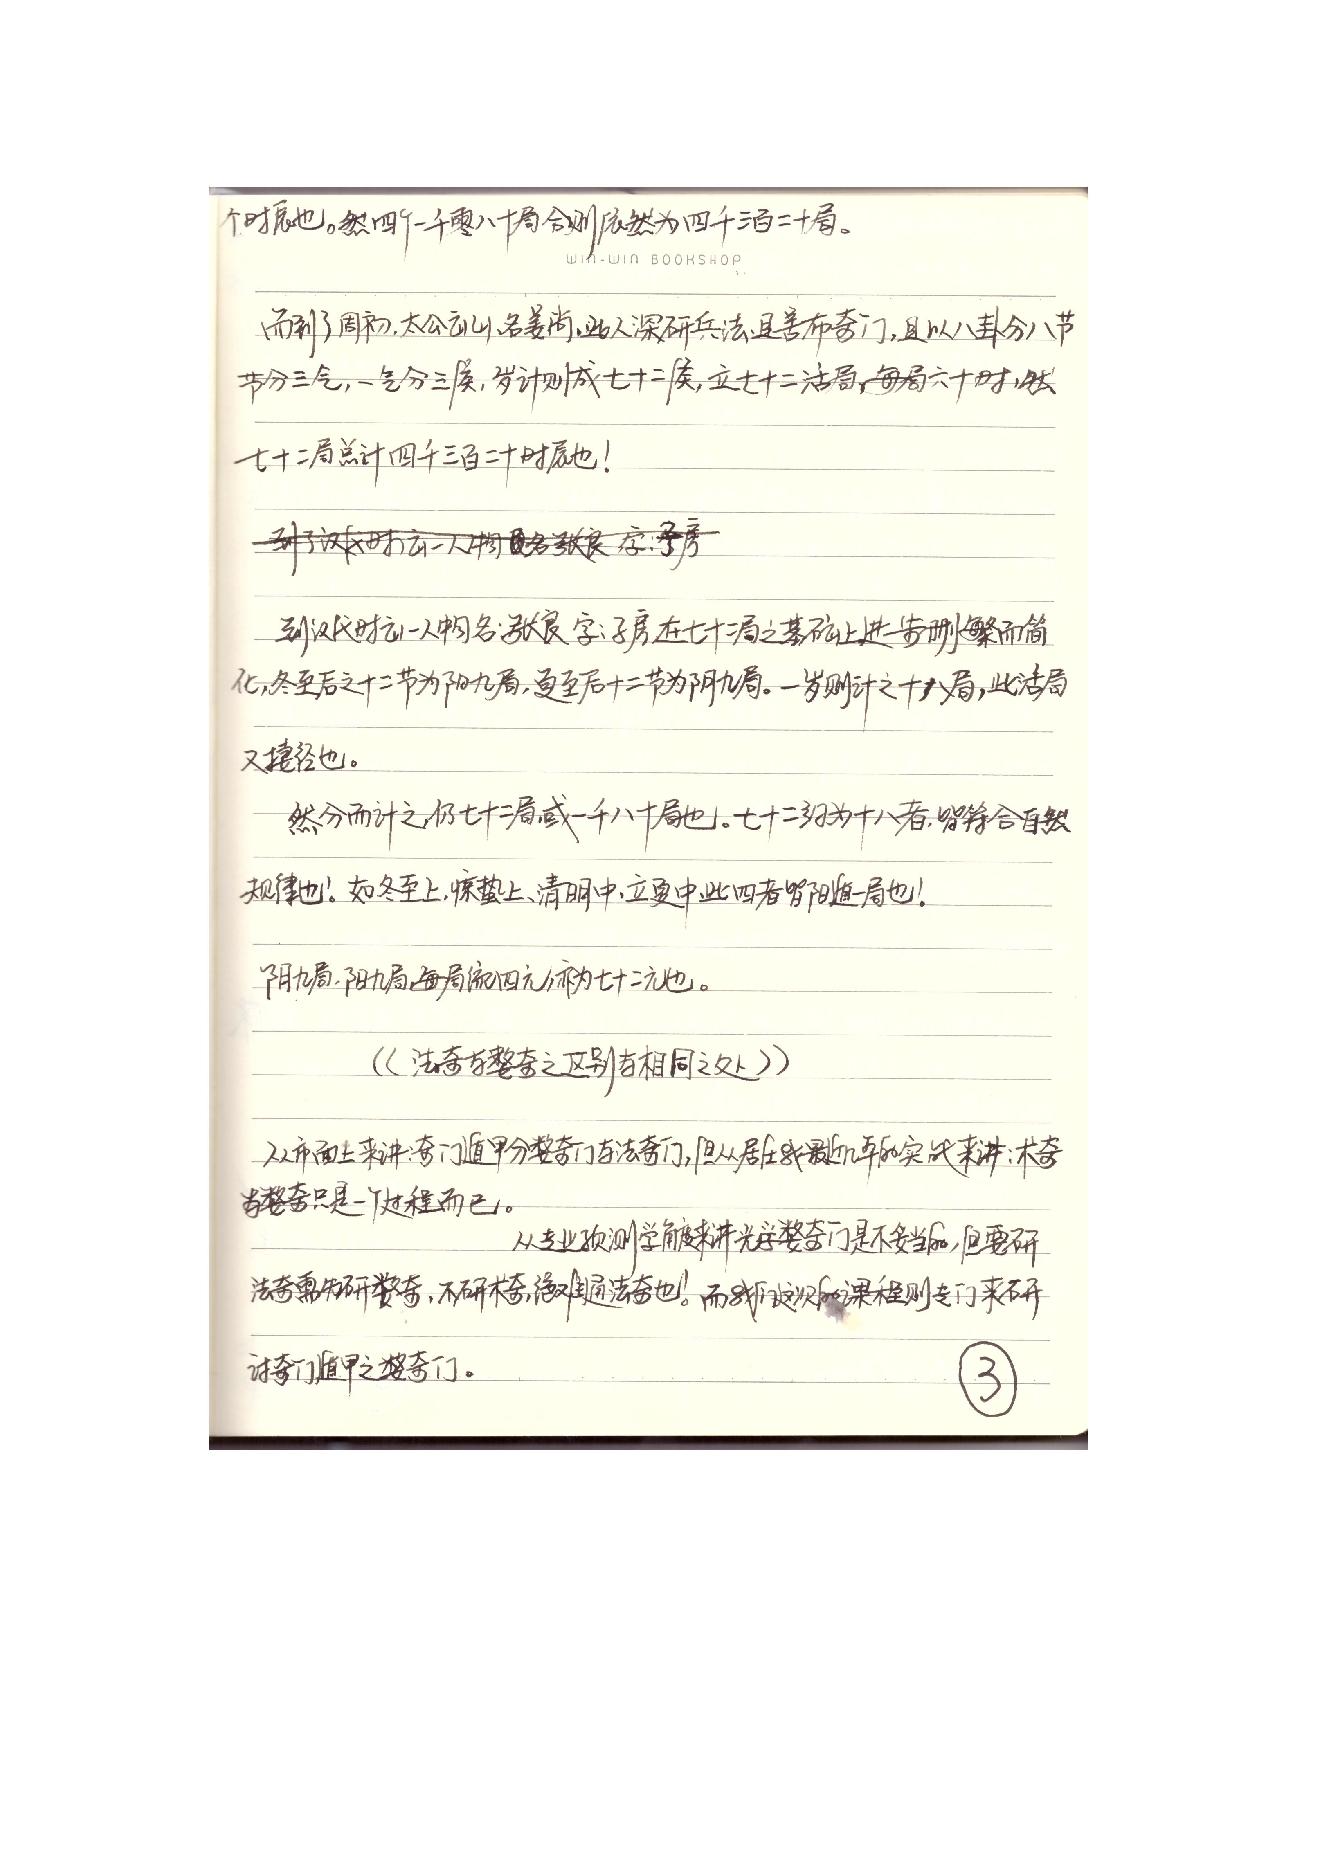 个时辰也。然四个一千零八十局合则依然为四千三百二十局。
WIN-WIN BOOKSHOP
而到了周初,太公云山,名姜尚,此人深研兵法且善布奇门,且以八卦分八节
节分三气,一气分三候,岁计则成七十二候,立七十二活局,每局六十时,然
七十二局总计四千三百二十时辰也!
到了汉代时云一人物 名张良 字:子房
到汉代时云一人物名:张良 字:子房在七十二局之基础上进一步删繁而简
化,冬至后之十二节为阳九局,夏至后十二节为阴九局。一岁则计之十八局,此活局
又捷径也。
然分而计之,仍七十二局或一千八十局也。七十二约为十八者,皆符合自然
规律也!如冬至上,惊蛰上、清明中,立夏中此四者皆阳遁一局也!
阴九局,阳九局,每局流四元,亦为七十二元也。
((法奇与整奇之区别与相同之处))
从市面上来讲:奇门遁甲分整奇门与法奇门,但从居士我最近几年的实战来讲:术奇
与整奇只是一个过程而已。
从专业预测学角度来讲光学整奇门是不妥当的,但要研
法奇需先研整奇,不研术奇,绝对难通法奇也!而我们这次的课程则专门来研
讨奇门遁甲之整奇门。
3